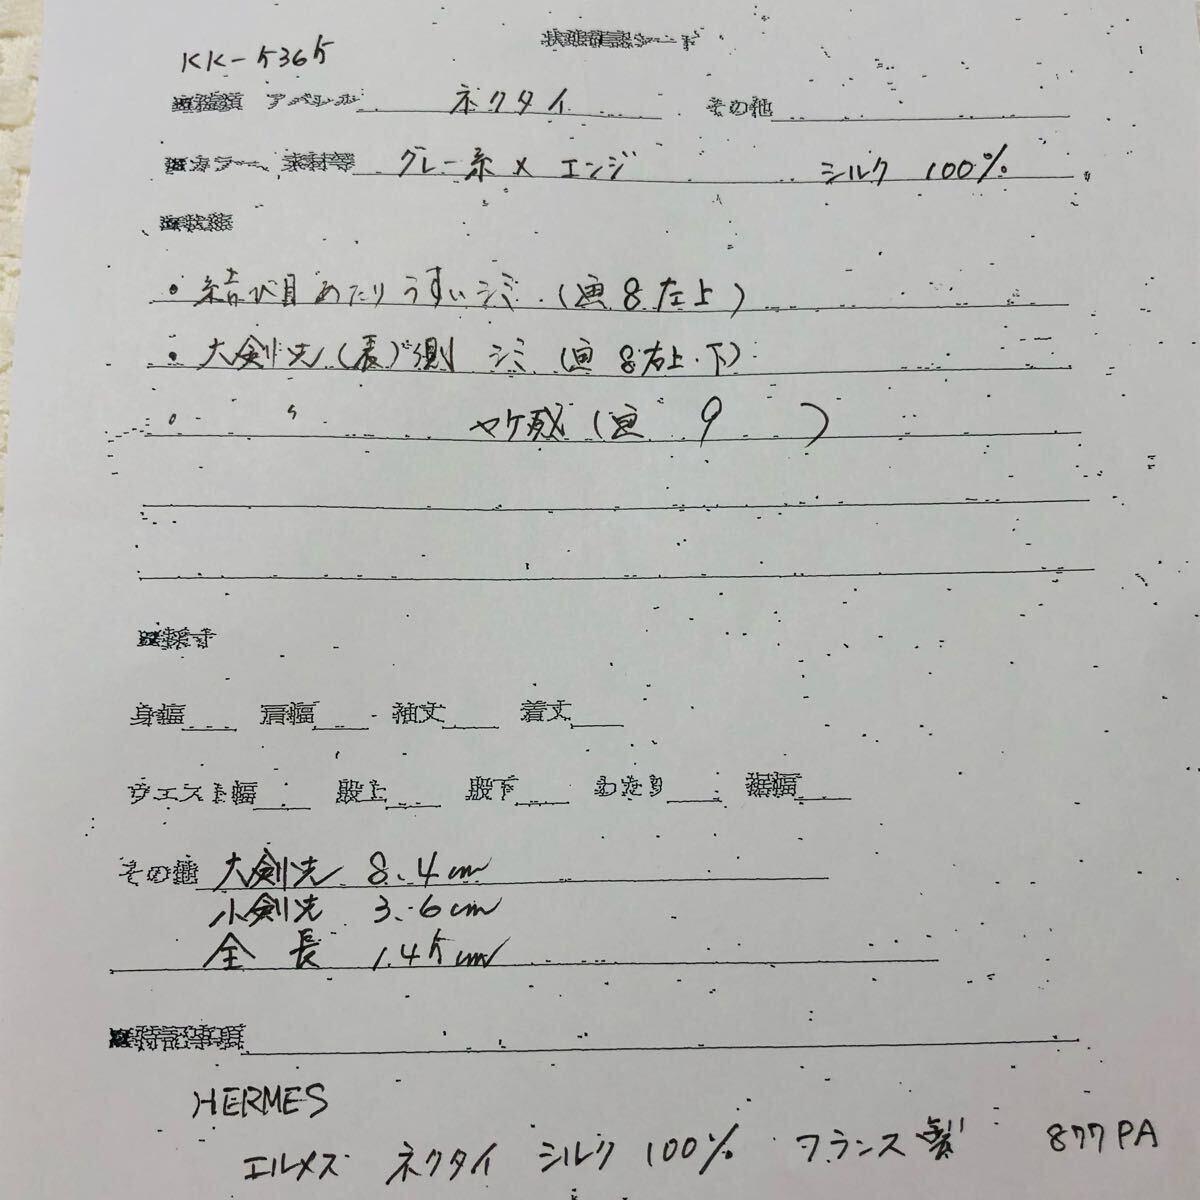 状態確認シート
KK-5365
■種類 アパレル ネクタイ その他
■カラー、素材等 グレー系×エンジ シルク 100%
■状態
・結び目あたりうすいシミ(画8左上)
・大剣先(裏)側 シミ(画8右上・下)
〃 〃 ヤケ感(画 9 )
■採寸
身幅 肩幅 袖丈 着丈
ウエスト幅 股上 股下 わたり 裾幅
その他 大剣先 8.4cm
小剣先 3.6cm
全長 1.45cm
■特記事項
HERMES
エルメス ネクタイ シルク 100% フランス製 877PA